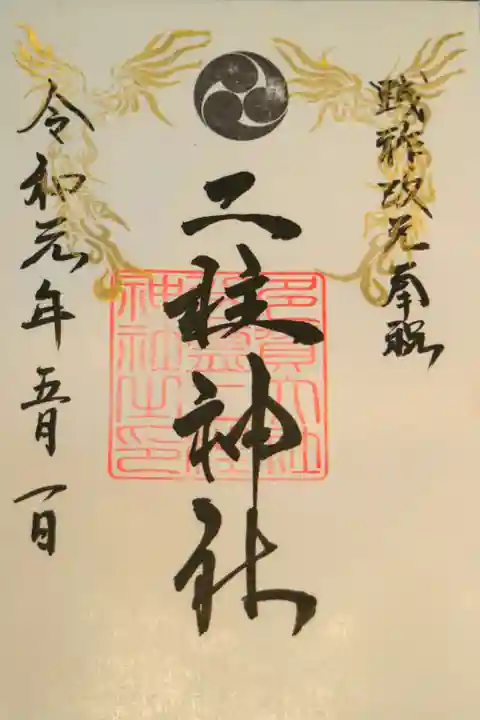 践祚改元奉祝
二柱神社
令和元年五月一日